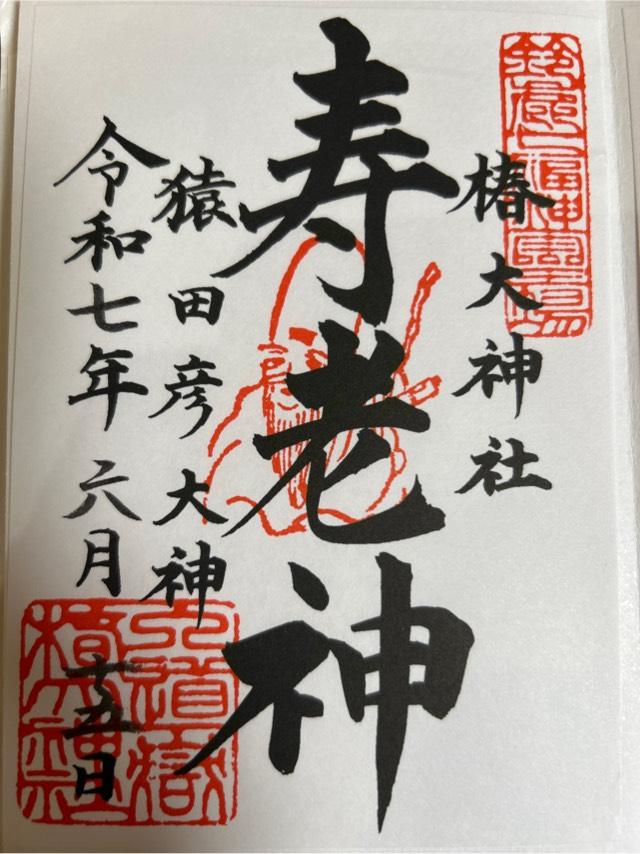 鈴鹿七福神霊場
椿大神社
寿老神
猿田彦大神
令和七年六月十五日